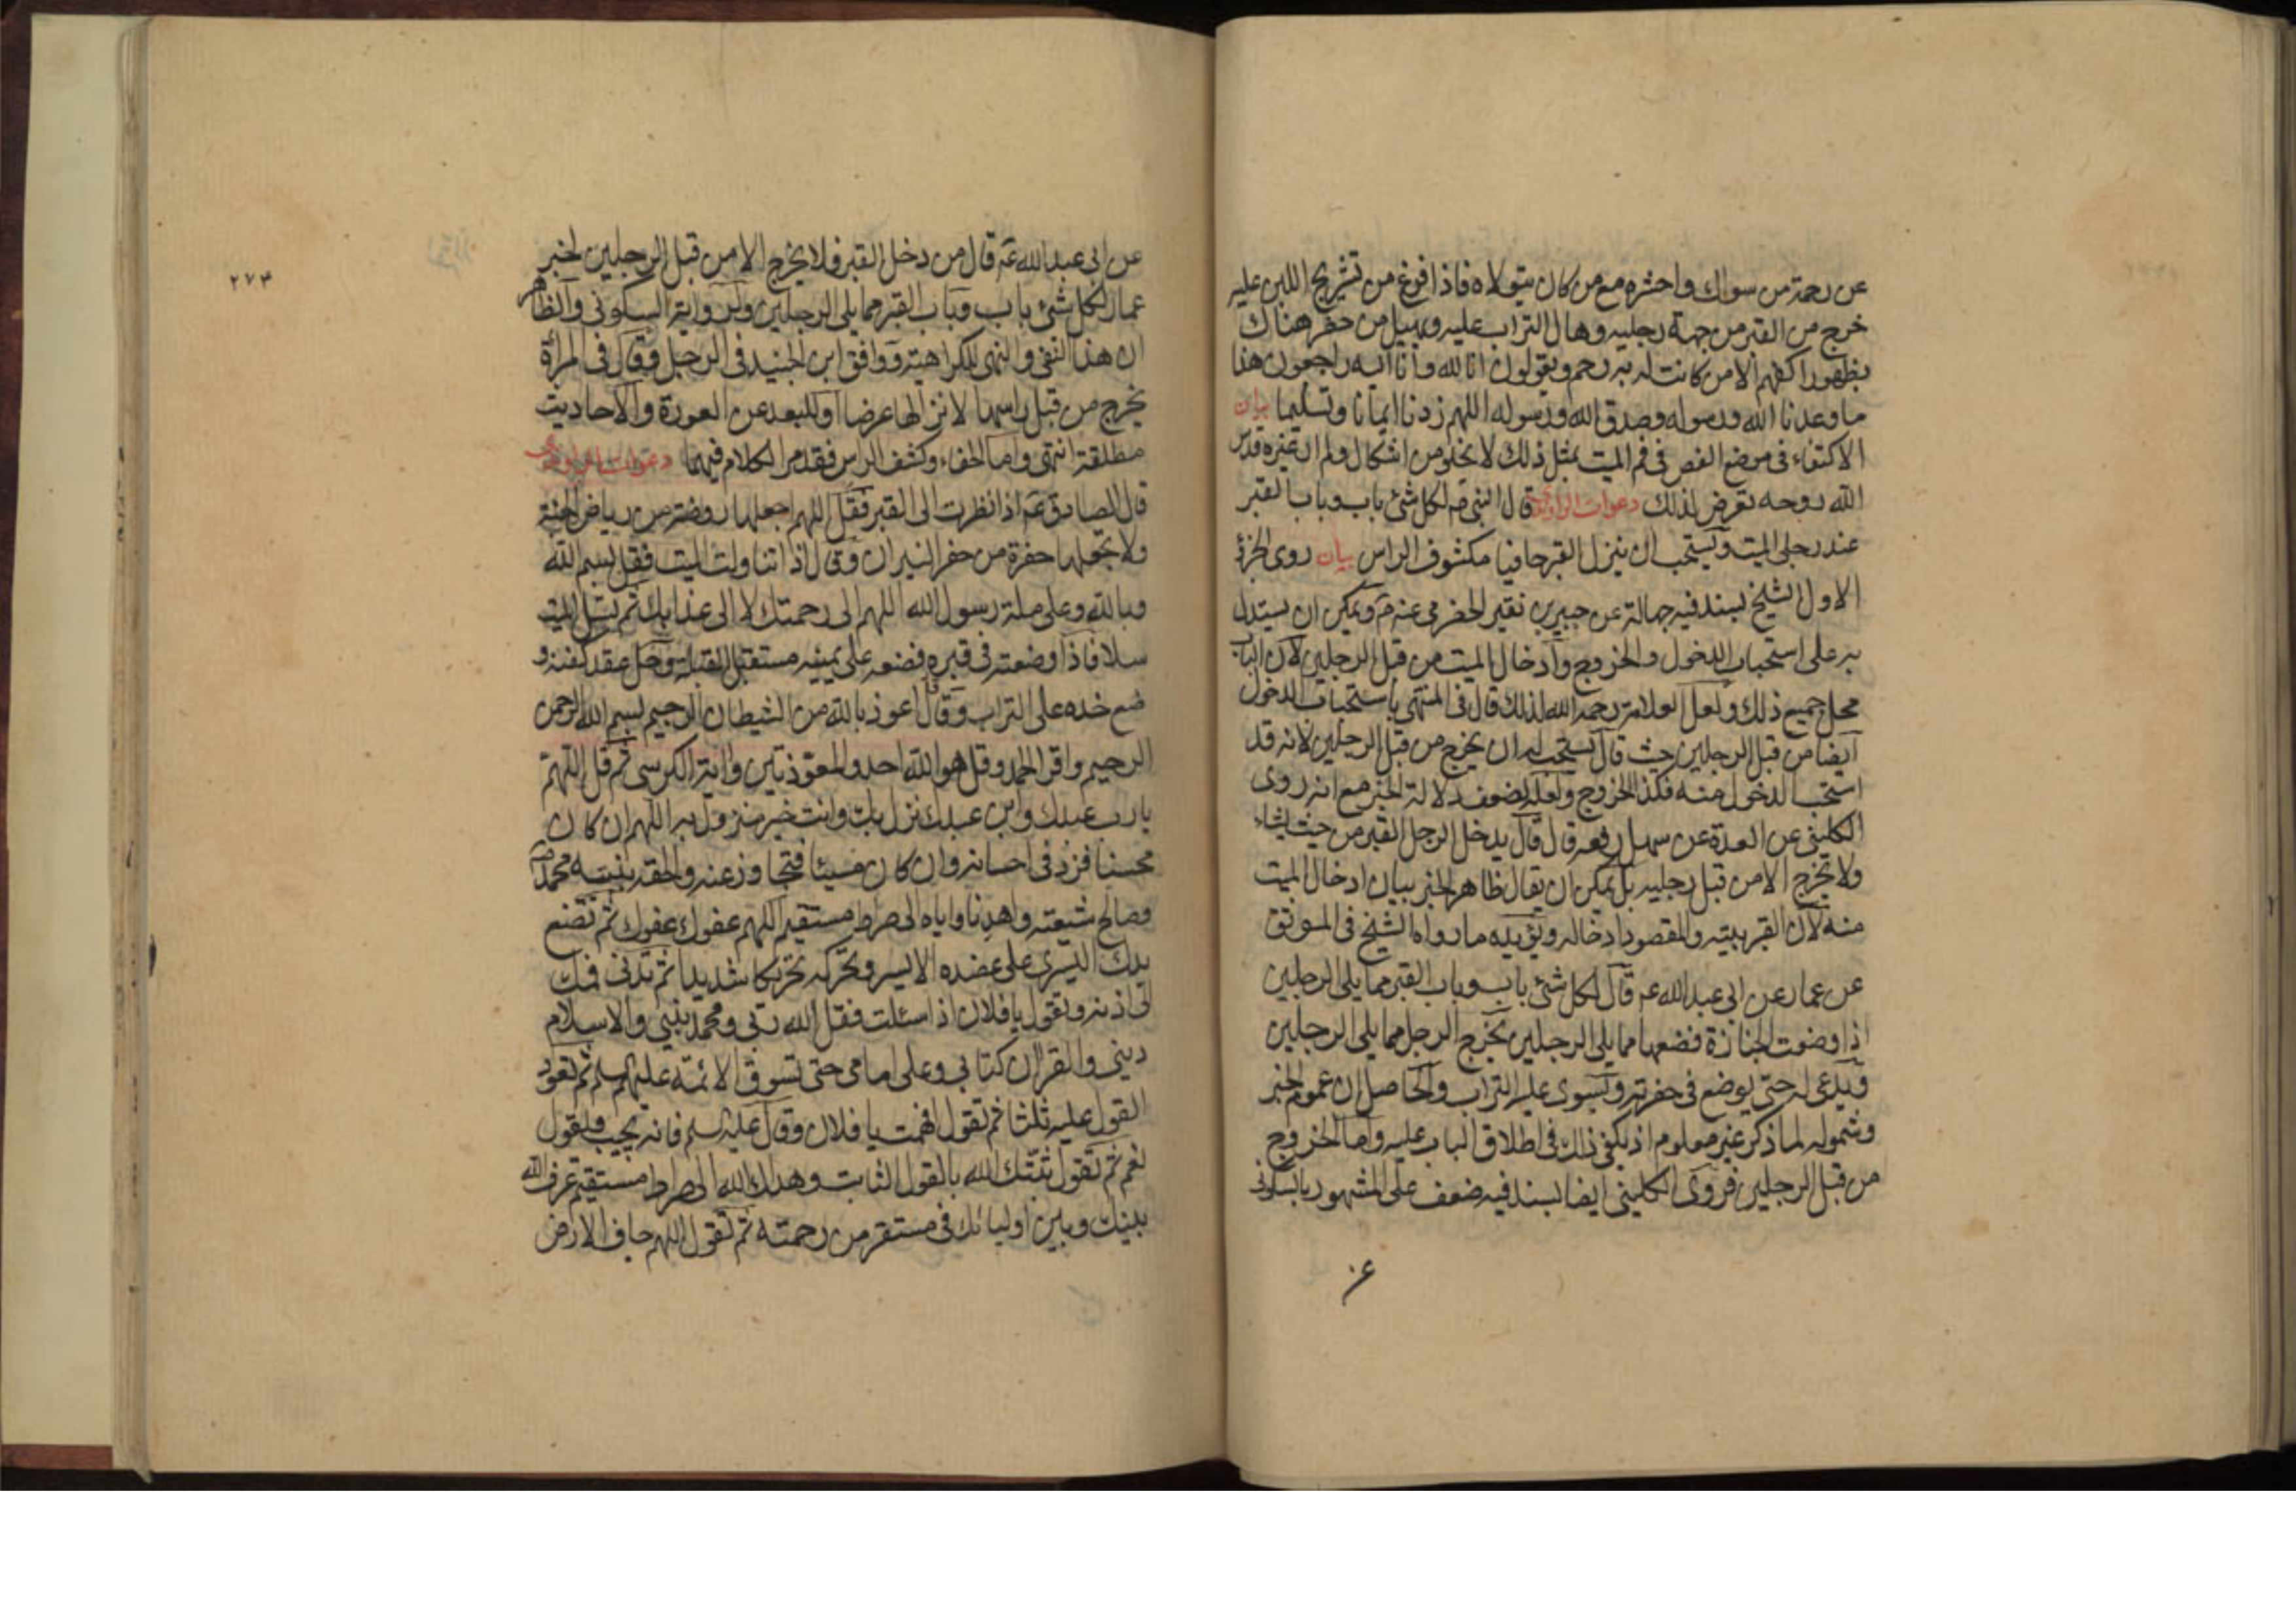 عن رحمة من سواك واحشره مع من كان يتولاه فاذا فرغ من تشريج اللبن عليه
خرج من القبر من جهة رجليه وهال التراب عليه ويهيل من حضر هناك
بظهور اكفهم الا من كانت له به رحم ويقولون انا لله وانا اليه راجعون هذا
ما وعدنا الله ورسوله وصدق الله ورسوله اللهم زدنا ايمانا وتسليما بيان
الاكتفاء في وضع الفص في فم الميت بمثل ذلك لا يخلو من اشكال ولم ار غيره قدس
الله روحه تعرض لذلك دعوات الراوندي قال النبي ص لكل شئ باب وباب القبر
عند رجلي الميت ويستحب ان ينزل القبر حافيا مكشوف الراس بيان روى الجزء
الاول الشيخ بسند فيه جهالة عن جبير بن نقير الحضرمي عنه ص ويمكن ان يستدل
به على استحباب الدخول والخروج وادخال الميت من قبل الرجلين لان الباب
محل جميع ذلك ولعل العلامة رحمه الله لذلك قال في المنتهى باستحباب الدخول
ايضا من قبل الرجلين حيث قال يستحب له ان يخرج من قبل الرجلين لانه قد
استحب الدخول منه فكذا الخروج ولعله لضعف دلالة الخبر مع انه روى
الكليني عن العدة عن سهل رفعه قال قال يدخل الرجل القبر من حيث يشاء
ولا يخرج الا من قبل رجليه بل يمكن ان يقال ظاهر الخبر بيان ادخال الميت
منه لان القبر بيته والمقصود ادخاله ويؤيده ما رواه الشيخ في الموثق
عن عمار عن ابي عبد الله ع قال لكل شئ باب وباب القبر مما يلي الرجلين
اذا وضعت الجنازة فضعها مما يلي الرجلين يخرج الرجل مما يلي الرجلين
ويدعى له حتى يوضع في حفرته ويسوى عليه التراب والحاصل ان عموم الخبر
وشموله لما ذكر غير معلوم اذ يكفي ذلك في اطلاق الباب عليه واما الخروج
من قبل الرجلين فروى الكليني ايضا بسند فيه ضعف على المشهور بالسكوني
عن
٢٧٣
عن ابي عبد الله ع قال من دخل القبر فلا يخرج الا من قبل الرجلين لخبر
عمار لكل شئ باب وباب القبر مما يلي الرجلين ولرواية السكوني والظاهر
ان هذا النفي والنهي للكراهية ووافق ابن الجنيد في الرجل وقال في المراة
يخرج من قبل راسها لانزالها عرضا او للبعد عن العورة والاحاديث
مطلقة انتهى واما الحفاء وكشف الراس فقد مر الكلام فيهما دعوات الراوندي
قال الصادق ع اذا نظرت الى القبر فقل اللهم اجعلها روضة من رياض الجنة
ولا تجعلها حفرة من حفر النيران وقال اذا تناولت الميت فقل بسم الله
وبالله وعلى ملة رسول الله اللهم الى رحمتك لا الى عذابك ثم تسل الميت
سلا فاذا وضعته في قبره فضعه على يمينه مستقبل القبلة وحل عقد كفنه و
ضع خده على التراب وقال اعوذ بالله من الشيطان الرجيم بسم الله الرحمن
الرحيم واقرا الحمد وقل هو الله احد والمعوذتين واية الكرسي ثم قل اللهم
يا رب عبدك وابن عبدك نزل بك وانت خير منزول به اللهم ان كان
محسنا فزد في احسانه وان كان مسيئا فتجاوز عنه والحقه بنبيه محمد ص
وصالح شيعته واهدنا واياه الى صراط مستقيم اللهم عفوك عفوك ثم تضع
يدك اليسرى على عضده الايسر وتحركه تحريكا شديدا ثم تدني فمك
الى اذنه وتقول يا فلان اذا سئلت فقل الله ربي ومحمد نبيي والاسلام
ديني والقران كتابي وعلي امامي حتى تسوق الائمة عليهم السلم ثم تعود
القول عليه ثلثا ثم تقول افهمت يا فلان وقال عليه السلم فانه يجيب ويقول
نعم ثم تقول ثبتك الله بالقول الثابت وهداك الله الى صراط مستقيم عرف الله
بينك وبين اوليائك في مستقر من رحمته ثم تقول اللهم جاف الارض